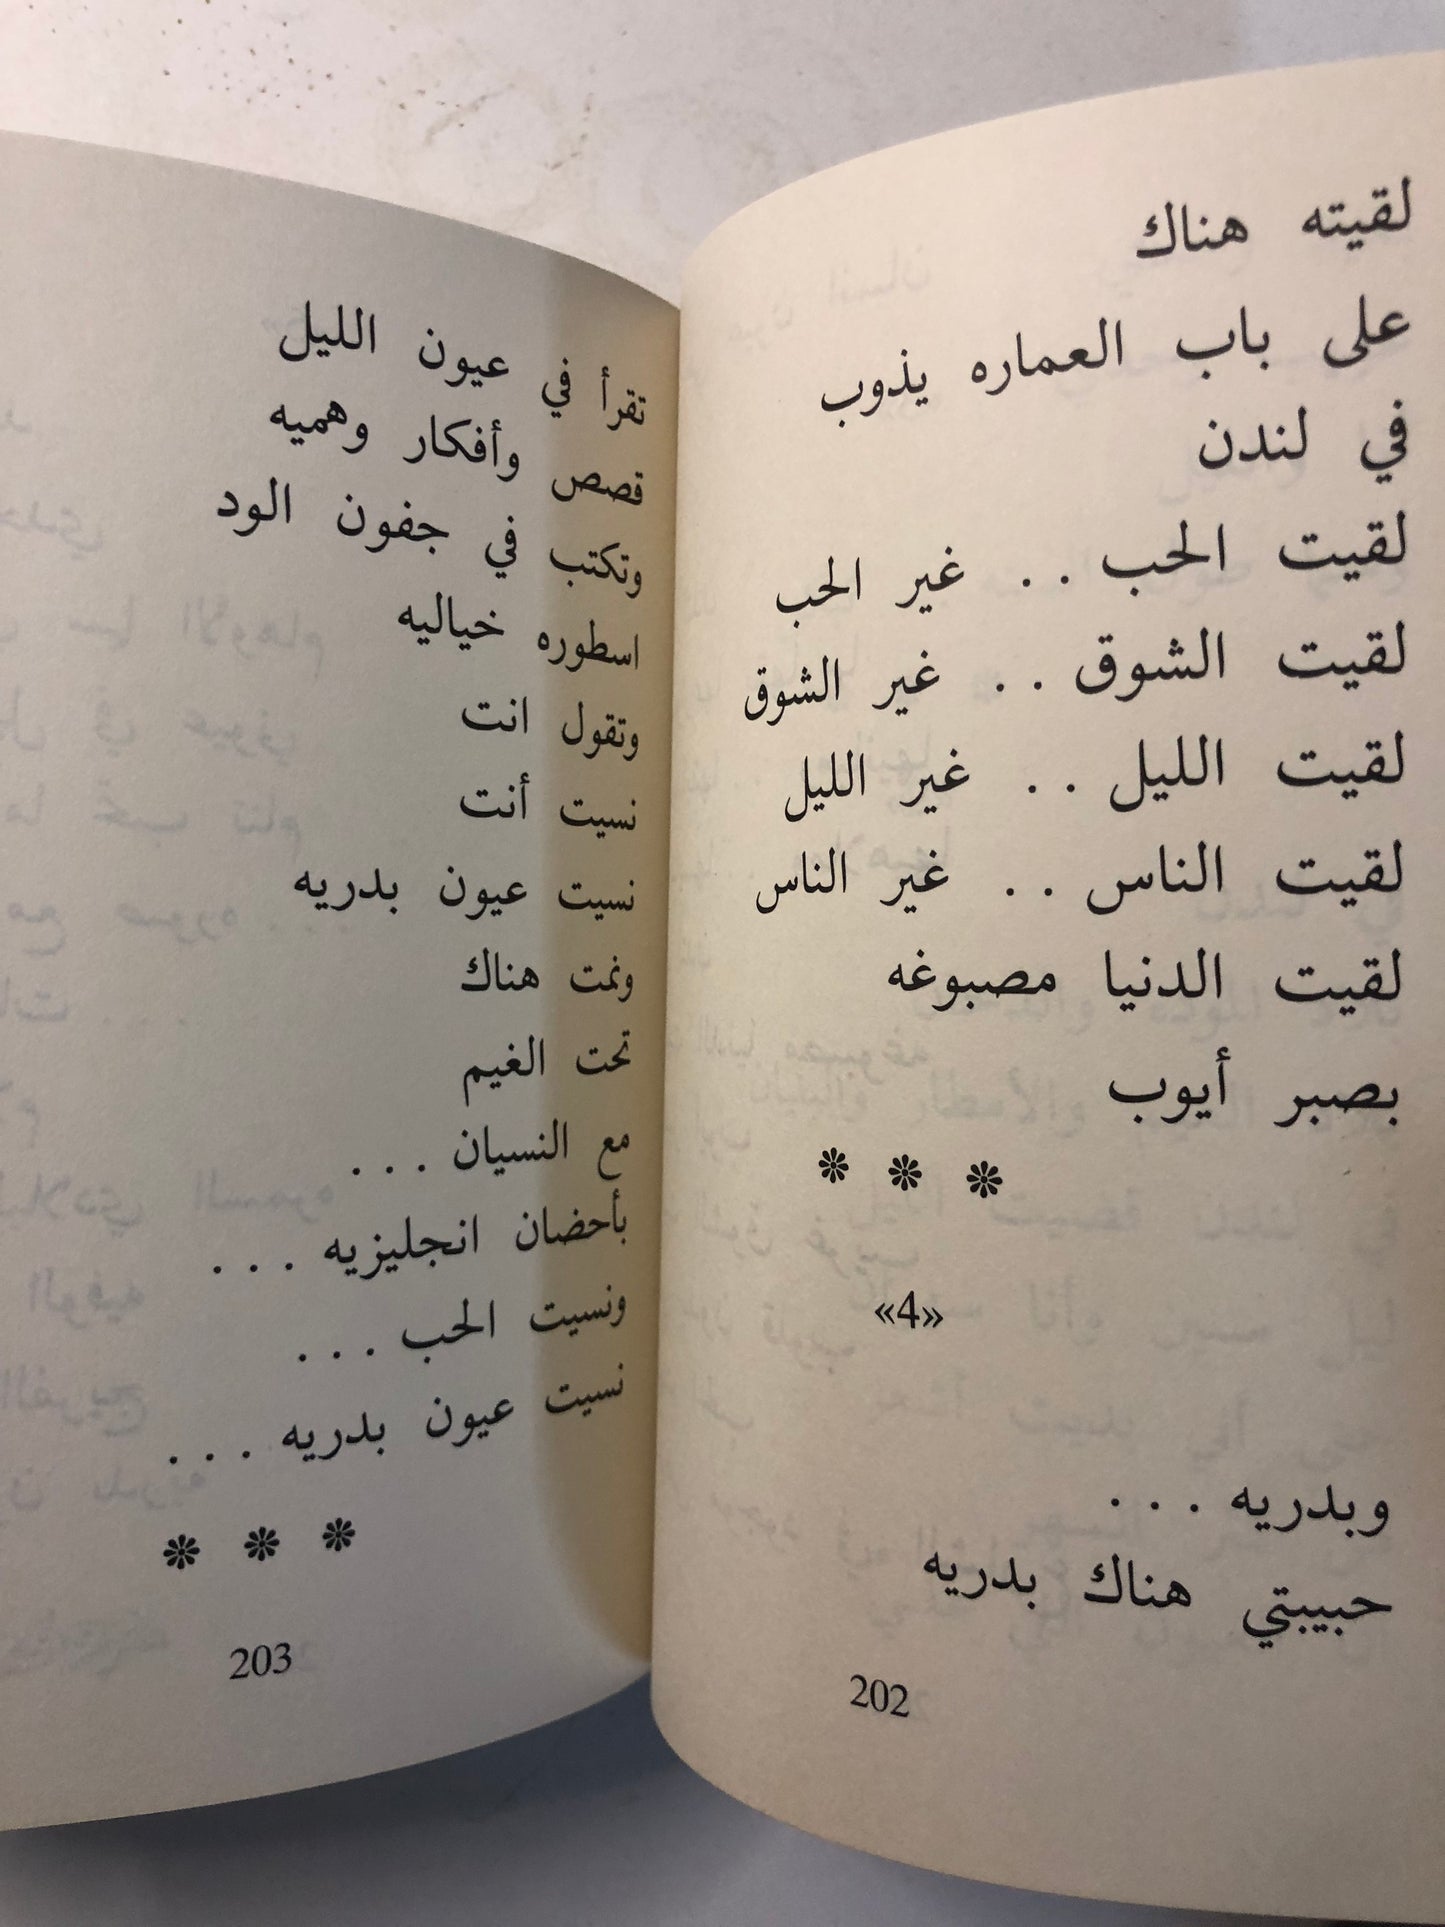 لقيته هناك
على باب العماره يذوب
في لندن
لقيت الحب . . غير الحب
لقيت الشوق . . غير الشوق
لقيت الليل . . غير الليل
لقيت الناس . . غير الناس
لقيت الدنيا مصبوغه
بصبر أيوب
❊ ❊ ❊
«4»
وبدريه . . .
حبيبتي هناك بدريه
202
تقرأ في عيون الليل
قصص وأفكار وهميه
وتكتب في جفون الود
اسطوره خياليه
وتقول انت
نسيت أنت
نسيت عيون بدريه
ونمت هناك
تحت الغيم
مع النسيان . . .
بأحضان انجليزيه . . .
ونسيت الحب . . .
نسيت عيون بدريه . . .
❊ ❊ ❊
203